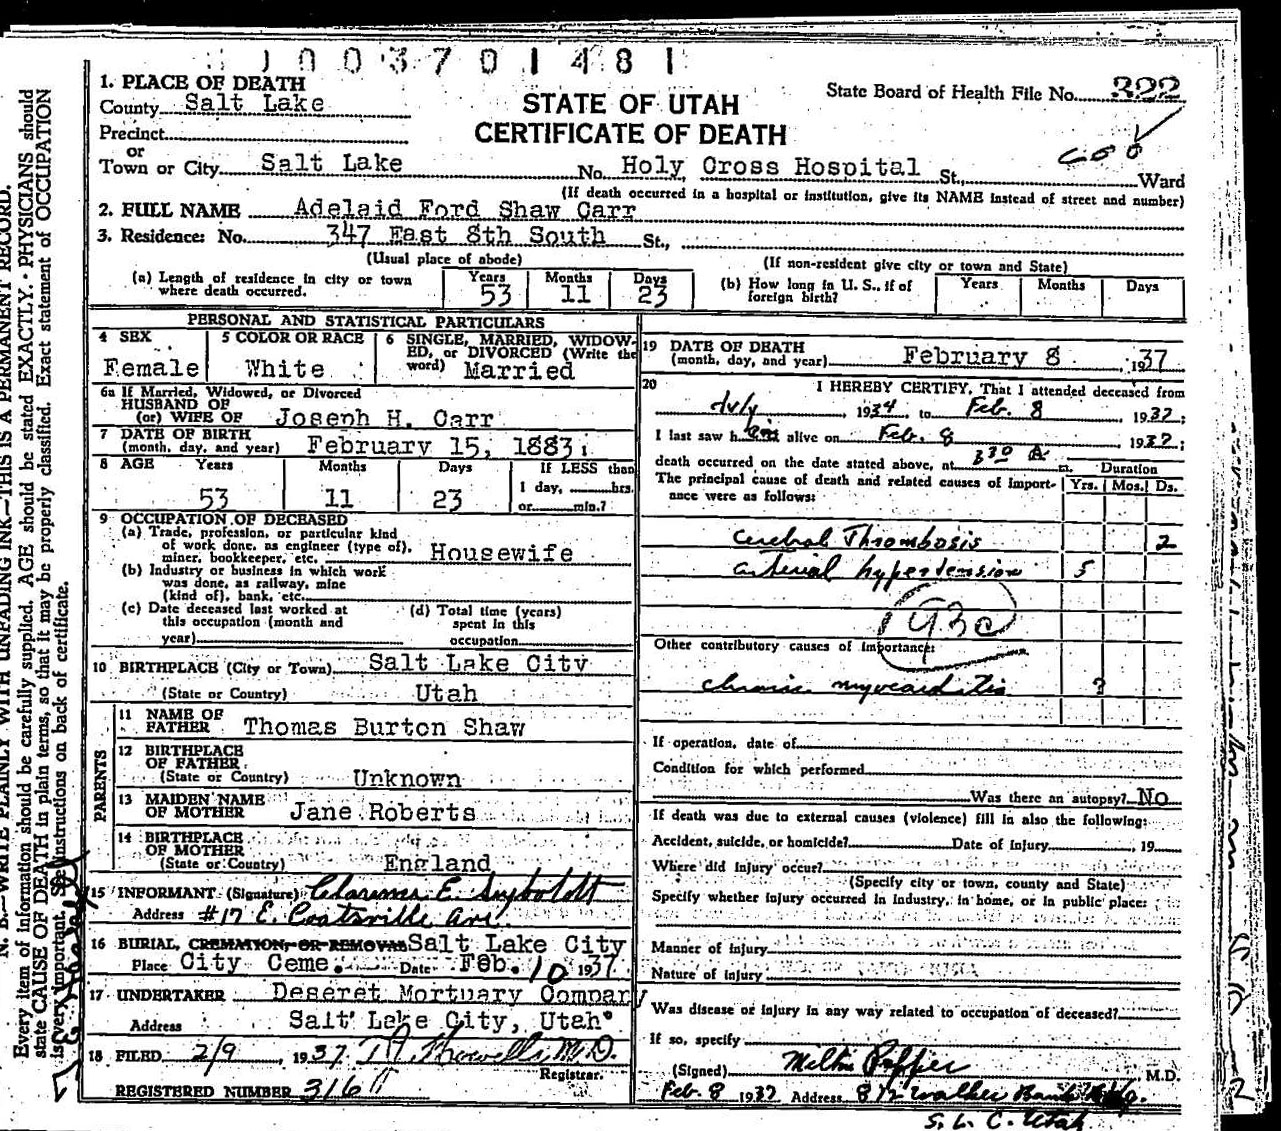 1003701481
1. PLACE OF DEATH
County Salt Lake
STATE OF UTAH
CERTIFICATE OF DEATH
State Board of Health File No. 322
Precinct
or
Town or City Salt Lake No. Holy Cross Hospital St., Ward
(If death occurred in a hospital or institution, give its NAME instead of street and number)
2. FULL NAME Adelaid Ford Shaw Carr
3. Residence: No. 347 East 8th South St.,
(Usual place of abode) (If non-resident give city or town and State)
(a) Length of residence in city or town where death occurred. Years 53 Months 11 Days 23
(b) How long in U. S., if of foreign birth? Years Months Days
PERSONAL AND STATISTICAL PARTICULARS
4 SEX Female
5 COLOR OR RACE White
6 SINGLE, MARRIED, WIDOW-
ED, or DIVORCED (Write the
word) Married
6a If Married, Widowed, or Divorced
HUSBAND OF
(or) WIFE OF Joseph H. Carr
7 DATE OF BIRTH
(month, day, and year) February 15, 1883
8 AGE Years 53 Months 11 Days 23
If LESS than
1 day, hrs.
or min.?
9 OCCUPATION OF DECEASED
(a) Trade, profession, or particular kind
of work done, as engineer (type of),
miner, bookkeeper, etc. Housewife
(b) Industry or business in which work
was done, as railway, mine
(kind of), bank, etc.
(c) Date deceased last worked at
this occupation (month and
year)
(d) Total time (years)
spent in this
occupation
10 BIRTHPLACE (City or Town) Salt Lake City
(State or Country) Utah
PARENTS
11 NAME OF
FATHER Thomas Burton Shaw
12 BIRTHPLACE
OF FATHER
(State or Country) Unknown
13 MAIDEN NAME
OF MOTHER Jane Roberts
14 BIRTHPLACE
OF MOTHER
(State or Country) England
15 INFORMANT (Signature) Clarence E.
Address #17 E. Coatsville Ave.
16 BURIAL, CREMATION, OR REMOVAL Salt Lake City
Place City Ceme. Date Feb. 10 1937
17 UNDERTAKER Deseret Mortuary Company
Address Salt Lake City, Utah
18 FILED 2/9, 1937 M.D.
Registrar.
REGISTERED NUMBER 316
19 DATE OF DEATH
(month, day, and year) February 8, 1937
20 I HEREBY CERTIFY, That I attended deceased from
July, 1934 to Feb. 8 1937;
I last saw her alive on Feb. 8 1937;
death occurred on the date stated above, at 3 30 A. m.
Duration
The principal cause of death and related causes of import-
ance were as follows:
Yrs. Mos. Ds.
Cerebral Thrombosis 2
arterial hypertension 5
93c
Other contributory causes of importance:
chronic myocarditis ?
If operation, date of
Condition for which performed
Was there an autopsy? No
If death was due to external causes (violence) fill in also the following:
Accident, suicide, or homicide? Date of injury, 19
Where did injury occur?
(Specify city or town, county and State)
Specify whether injury occurred in industry, in home, or in public place:
Manner of injury
Nature of injury
Was disease or injury in any way related to occupation of deceased?
If so, specify
(Signed) Milton Pepper, M.D.
Feb. 8 1937 Address 812 Walker Bank Bldg.
S. L. C. Utah
N. B.—WRITE PLAINLY WITH UNFADING INK—THIS IS A PERMANENT RECORD.
Every item of information should be carefully supplied. AGE should be stated EXACTLY. PHYSICIANS should
state CAUSE OF DEATH in plain terms, so that it may be properly classified. Exact statement of OCCUPATION
is very important. See instructions on back of certificate.